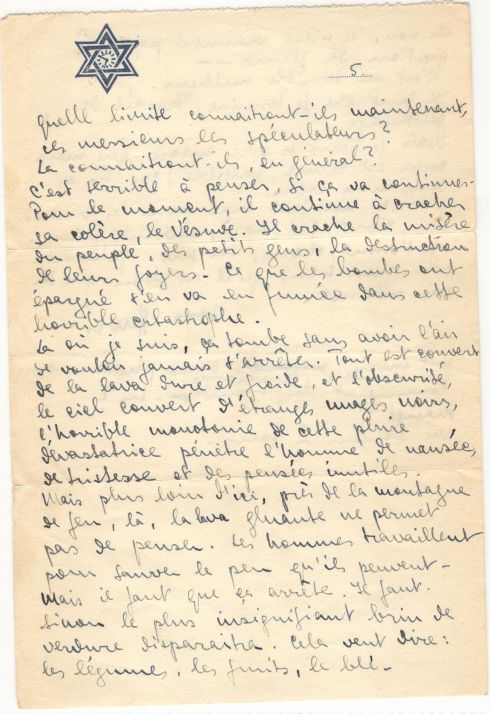 5
Quelle limite connaîtront-ils maintenant,
ces messieurs les spéculateurs?
La connaîtront-ils, en général?
C'est terrible à penser, si ça va continuer.
Pour le moment, il continue à cracher
sa colère, le Vésuve. Il crache la misère
du peuple, des petits gens, la destruction
de leurs foyers. Ce que les bombes ont
épargné s'en va en fumée dans cette
horrible catastrophe.
Là où je suis, ça tombe sans avoir l'air
de vouloir jamais s'arrêter. Tout est couvert
de la lava dure et froide, et l'obscurité,
le ciel couvert d'étranges nuages noirs,
l'horrible monotonie de cette pluie
dévastatrice pénètre l'homme de nausée,
de tristesse et des pensées inutiles.
Mais plus loin d'ici, près de la montagne
de feu, là, la lava gluante ne permet
pas de penser. Les hommes travaillent
pour sauver le peu qu'ils peuvent -
Mais il faut que ça arrête. Il faut.
Sinon le plus insignifiant brin de
verdure disparaitra. Cela veut dire:
les légumes, les fruits, le blé -